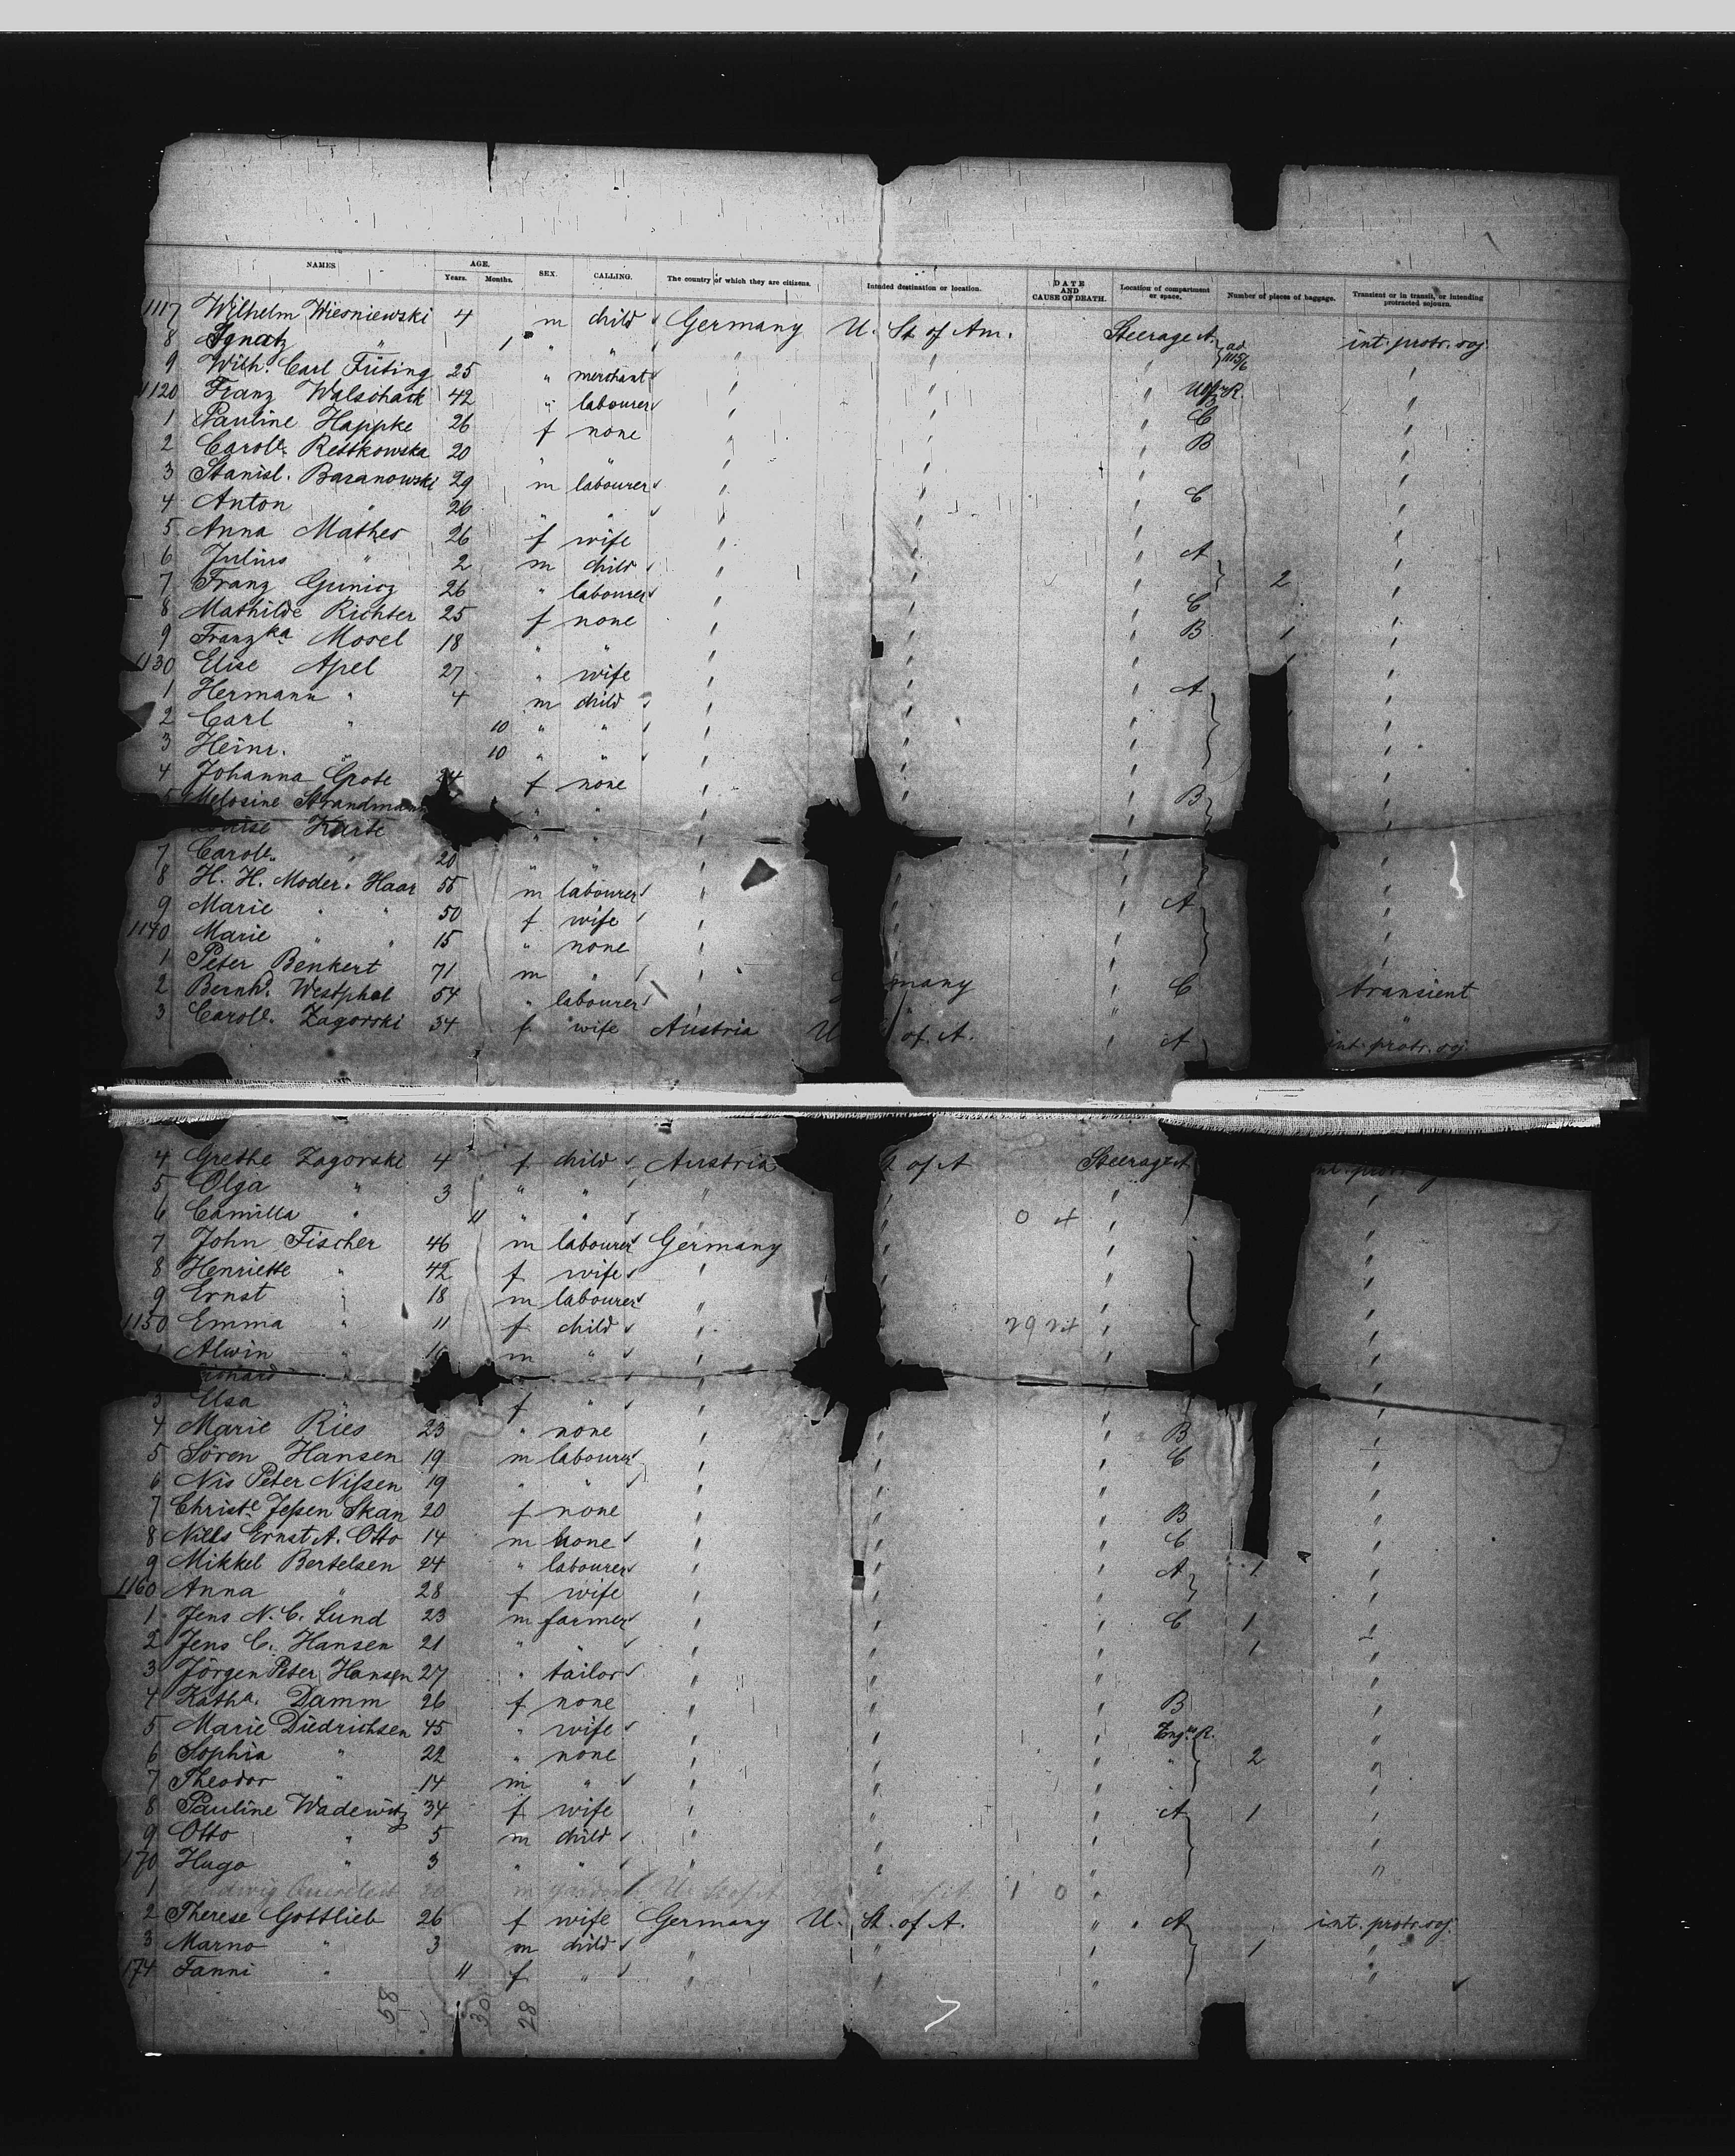 NAMES AGE. Years. Months. SEX. CALLING. The country of which they are citizens. Intended destination or location. DATE AND CAUSE OF DEATH. Location of compartment or space. Number of pieces of baggage. Transient or in transit, or intending protracted sojourn.
1117 Wilhelm Wisniewski 4 m child Germany U. St. of Am. Steerage A. int. protr. soj.
8 Ignatz " 1 " " " " " ad 1115/6 "
9 Wilh. Carl Füting 25 " merchant " " " "
1120 Franz Walschack 42 " labourer " " " "
1 Pauline Happke 26 f none " " " C "
2 Carole. Restkowska 20 " " " " " B "
3 Stanisl. Baranowski 29 m labourer " " " C "
4 Anton " 26 " " " " " "
5 Anna Mathes 26 f wife " " " A "
6 Julius " 2 m child " " " 2 "
7 Franz Gunicz 26 " labourer " " " C "
8 Mathilde Richter 25 f none " " " B 1 "
9 Franzka Mosel 18 " " " " " 1 "
1130 Elise Apel 27 " wife " " " A "
1 Hermann " 4 m child " " " "
2 Carl " 10 " " " " " "
3 Heinr. " 10 " " " " " "
4 Johanna Grote 24 f none " " " B "
5 Melosine Strandmann " " " " "
Louise Karte " " " "
7 Carole. " 20 " " " " " "
8 H. H. Moder. Haar 55 m labourer " " " A "
9 Marie " " 50 f wife " " " "
1140 Marie " " 15 " none " " " "
1 Peter Benkert 71 m " " many " C transient
2 Bernhd. Westphal 54 " labourer " "
3 Carole. Zagorski 34 f wife Austria U of A. " A int. protr. soj.
4 Grethe Zagorski 4 f child Austria of A Steerage A
5 Olga " 3 " " " " " "
6 Camilla " 11 " " " " 0 4 " "
7 John Fischer 46 m labourer Germany " " "
8 Henriette " 42 f wife " " " "
9 Ernst " 18 m labourer " " " "
1150 Emma " 11 f child " " " "
1 Alwin " 10 m " " " " "
" " " " "
3 Elsa " f " " " " "
4 Marie Ries 23 " none " " " B "
5 Sören Hansen 19 m labourer " " " C "
6 Nis Peter Nissen 19 " " " " " "
7 Christe. Jessen Skan 20 f none " " " B "
8 Nills Ernst A. Otto 14 m none " " " C "
9 Mikkel Bertelsen 24 " labourer " " " A 1 "
1160 Anna " 28 f wife " " " "
1 Jens N. C. Lund 23 m farmer " " " C 1 "
2 Jens C. Hansen 21 " " " " " 1 "
3 Jörgen Peter Hansen 27 " tailor " " " "
4 Katha. Damm 26 f none " " " B "
5 Marie Diedrichsen 45 " wife " " " "
6 Sophia " 22 " none " " " " 2 "
7 Theodor " 14 m " " " " "
8 Pauline Wadewitz 34 f wife " " " A 1 "
9 Otto " 5 m child " " " "
170 Hugo " 3 " " " " " "
1 Ludwig 20 m 1 0 "
2 Therese Gottlieb 26 f wife Germany U. St. of A. " " A int. protr. soj.
3 Marno " 3 m child " " " 1 "
174 Fanni " 11 f " " " " "
58 30 28